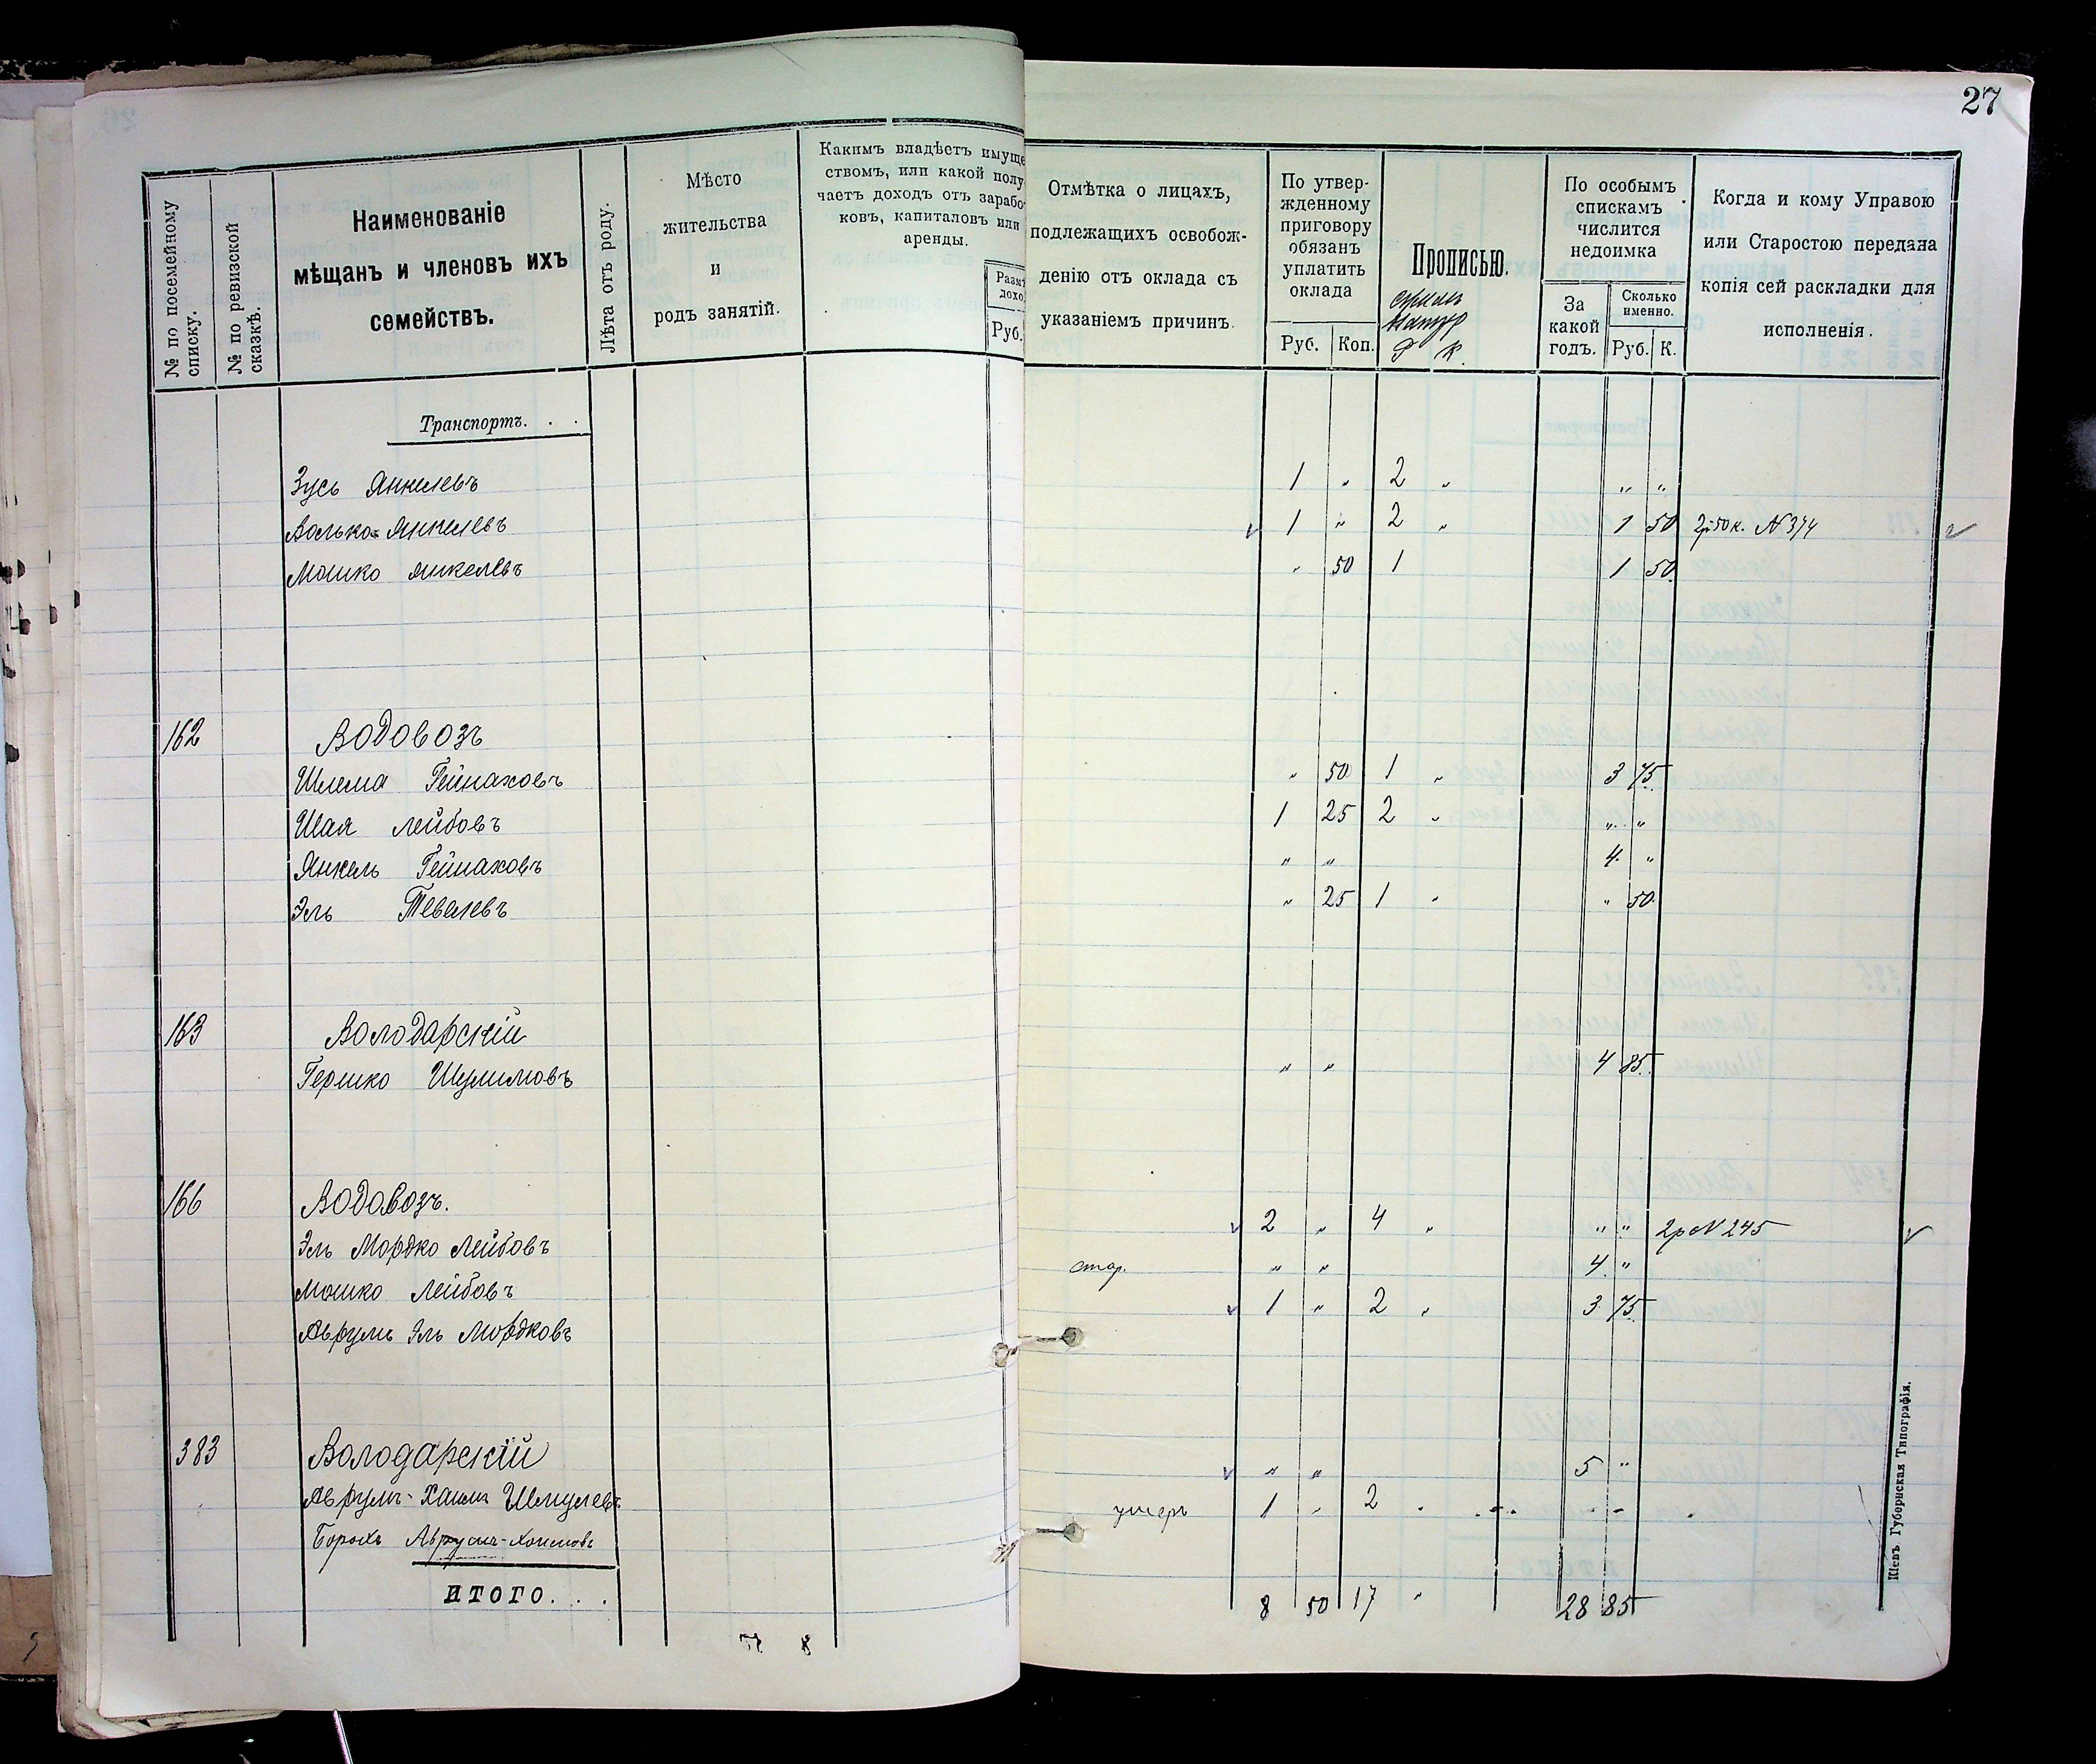 27
№ по посемейному списку.
№ по ревизской сказкѣ.
Наименованіе
мѣщанъ и членовъ ихъ
семействъ.
Лѣта отъ роду.
Мѣсто
жительства
и
родъ занятій.
Какимъ владѣетъ имуще
ствомъ, или какой полу
чаетъ доходъ отъ зарабо
ковъ, капиталовъ или
аренды.
Разм
дохо
Руб.
Отмѣтка о лицахъ,
подлежащихъ освобож-
денію отъ оклада съ
указаніемъ причинъ.
По утвер-
жденному
приговору
обязанъ
уплатить
оклада
Руб. Коп.
Прописью.
Р К.
По особымъ
спискамъ
числится
недоимка
За
какой
годъ.
Сколько
именно.
Руб. К.
Когда и кому Управою
или Старостою передана
копія сей раскладки для
исполненія.
Транспортъ. . .
Зусь Янкелевъ 1 „ 2 „ „ „
Волько Янкелевъ 1 „ 2 „ 1 50 2р 50 к. N 374
Мошко Янкелевъ „ 50 1 1 50
162 Водовозъ
Шлема Гейнаховъ „ 50 1 „ 3 75
Шая Лейбовъ 1 25 2 „ „ „
Янкель Гейнаховъ „ „ 4 „
Эль Тевелевъ „ 25 1 „ „ 50
163 Володарскій
Гершко Шулимовъ „ „ 4 85
166 Водовозъ.
Эль Мордко Лейбовъ 2 „ 4 „ „ „ 2р N 245
Мошко Лейбовъ стар. „ „ 4 „
Аврумъ Эль Мордковъ 1 „ 2 „ 3 75
383 Володарскій
Аврумъ-Хаимъ Шмулевъ „ „ 5 „
Борохъ Аврумъ-Хаимовъ умеръ 1 „ 2 „
ИТОГО. . . 8 50 17 „ 28 85
Кіевъ. Губернская Типографія.